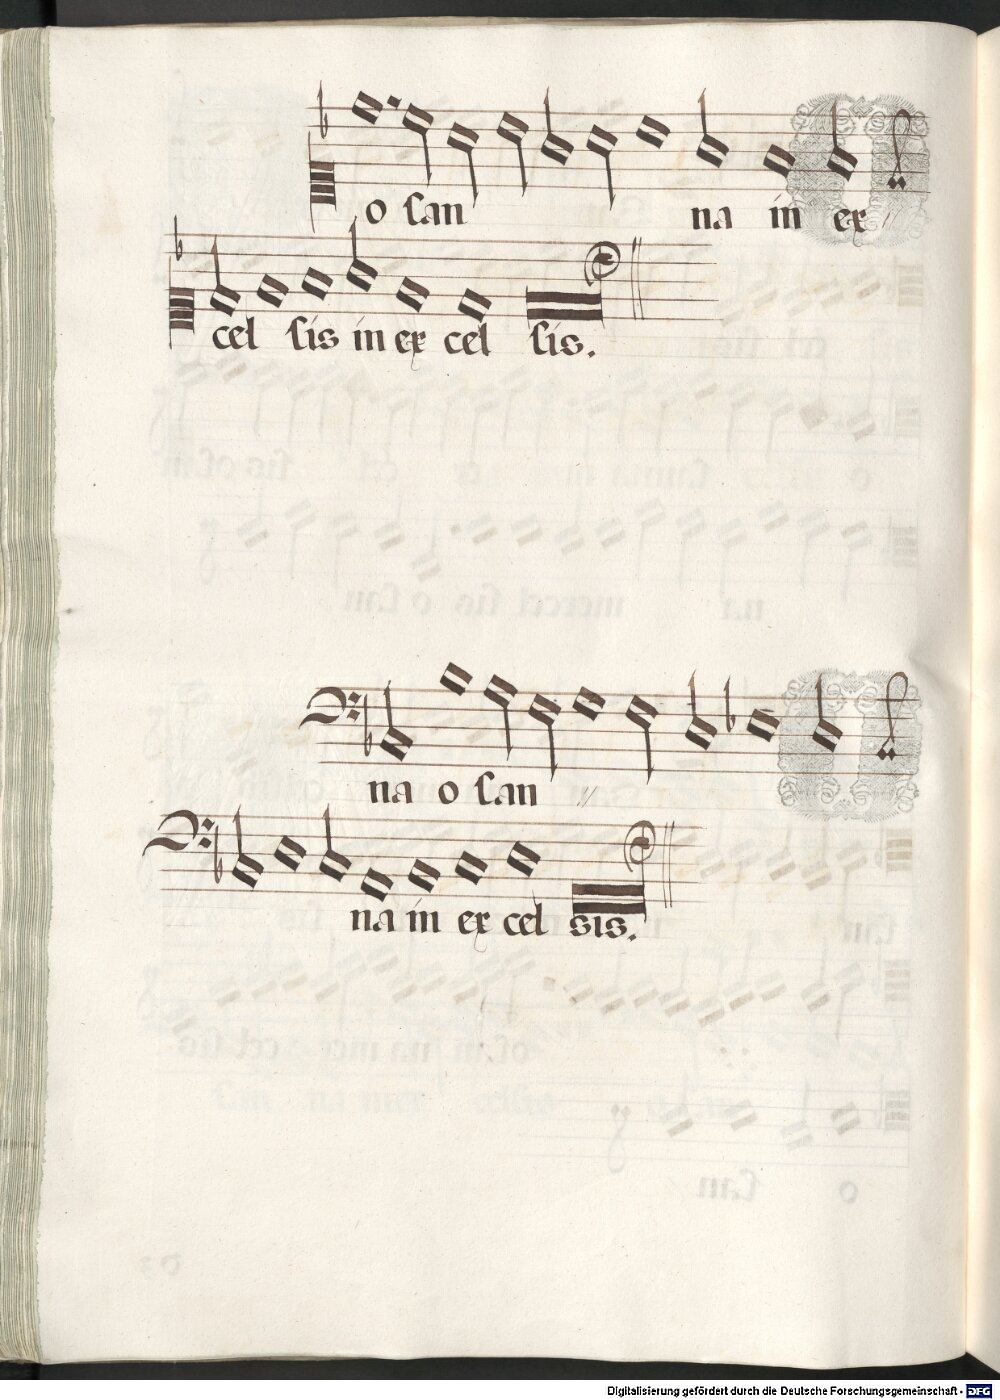 o san na in ex //
cel sis in ex cel sis.
na o san //
na in ex cel sis.
Digitalisierung gefördert durch die Deutsche Forschungsgemeinschaft - DFG